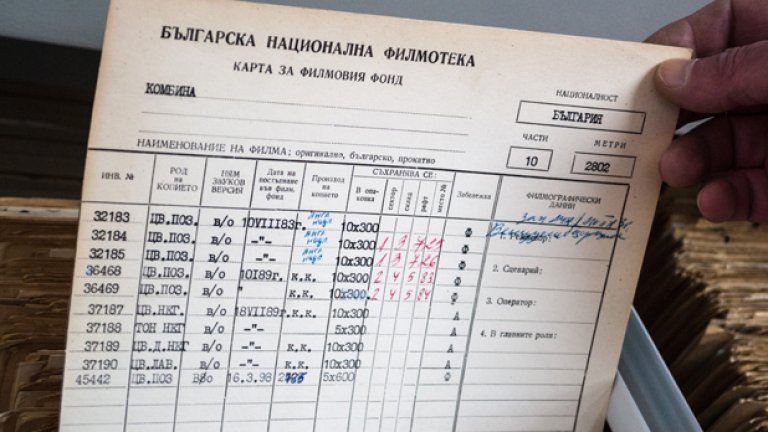 БЪЛГАРСКА НАЦИОНАЛНА ФИЛМОТЕКА
КАРТА ЗА ФИЛМОВИЯ ФОНД
КОМБИНА
НАЦИОНАЛНОСТ
БЪЛГАРИЯ
ЧАСТИ МЕТРИ
10 2802
НАИМЕНОВАНИЕ НА ФИЛМА; оригинално, българско, прокатно
ИНВ. № РОД НА КОПИЕТО НЯМ ЗВУКОВ ВЕРСИЯ Дата на постъпване във филм. фонд Произход на копието СЪХРАНЯВА СЕ: В опаковка сектор склад рафт место № Забележка ФИЛМОГРАФИЧЕСКИ ДАННИ
32183 ЦВ.ПОЗ. в/о 10VIII83г. 10х300 Ф
32184 ЦВ.ПОЗ. в/о -"- 10х300 1 3 7 25 Ф
32185 ЦВ.ПОЗ. в/о -"- 10х300 1 3 7 26 Ф
36468 ЦВ.ПОЗ. в/о 10I89г. к.к. 10х300 2 4 5 83 Ф
36469 ЦВ.ПОЗ. в/о " к.к. 10х300. 2 4 5 84 Ф
37187 ЦВ.НКГ. в/о 18VII89г. к.к. 10х300 А
37188 ТОН НКГ в/о -"- 5х300
37189 ЦВ.Д.НКГ в/о -"- к.к. 10х300 А
37190 ЦВ.ЛАВ. в/о -"- к.к. 10х300 А
45442 ЦВ.ПОЗ 16.3.98 5х600 Ф
2. Сценарий:
3. Оператор:
4. В главните роли: